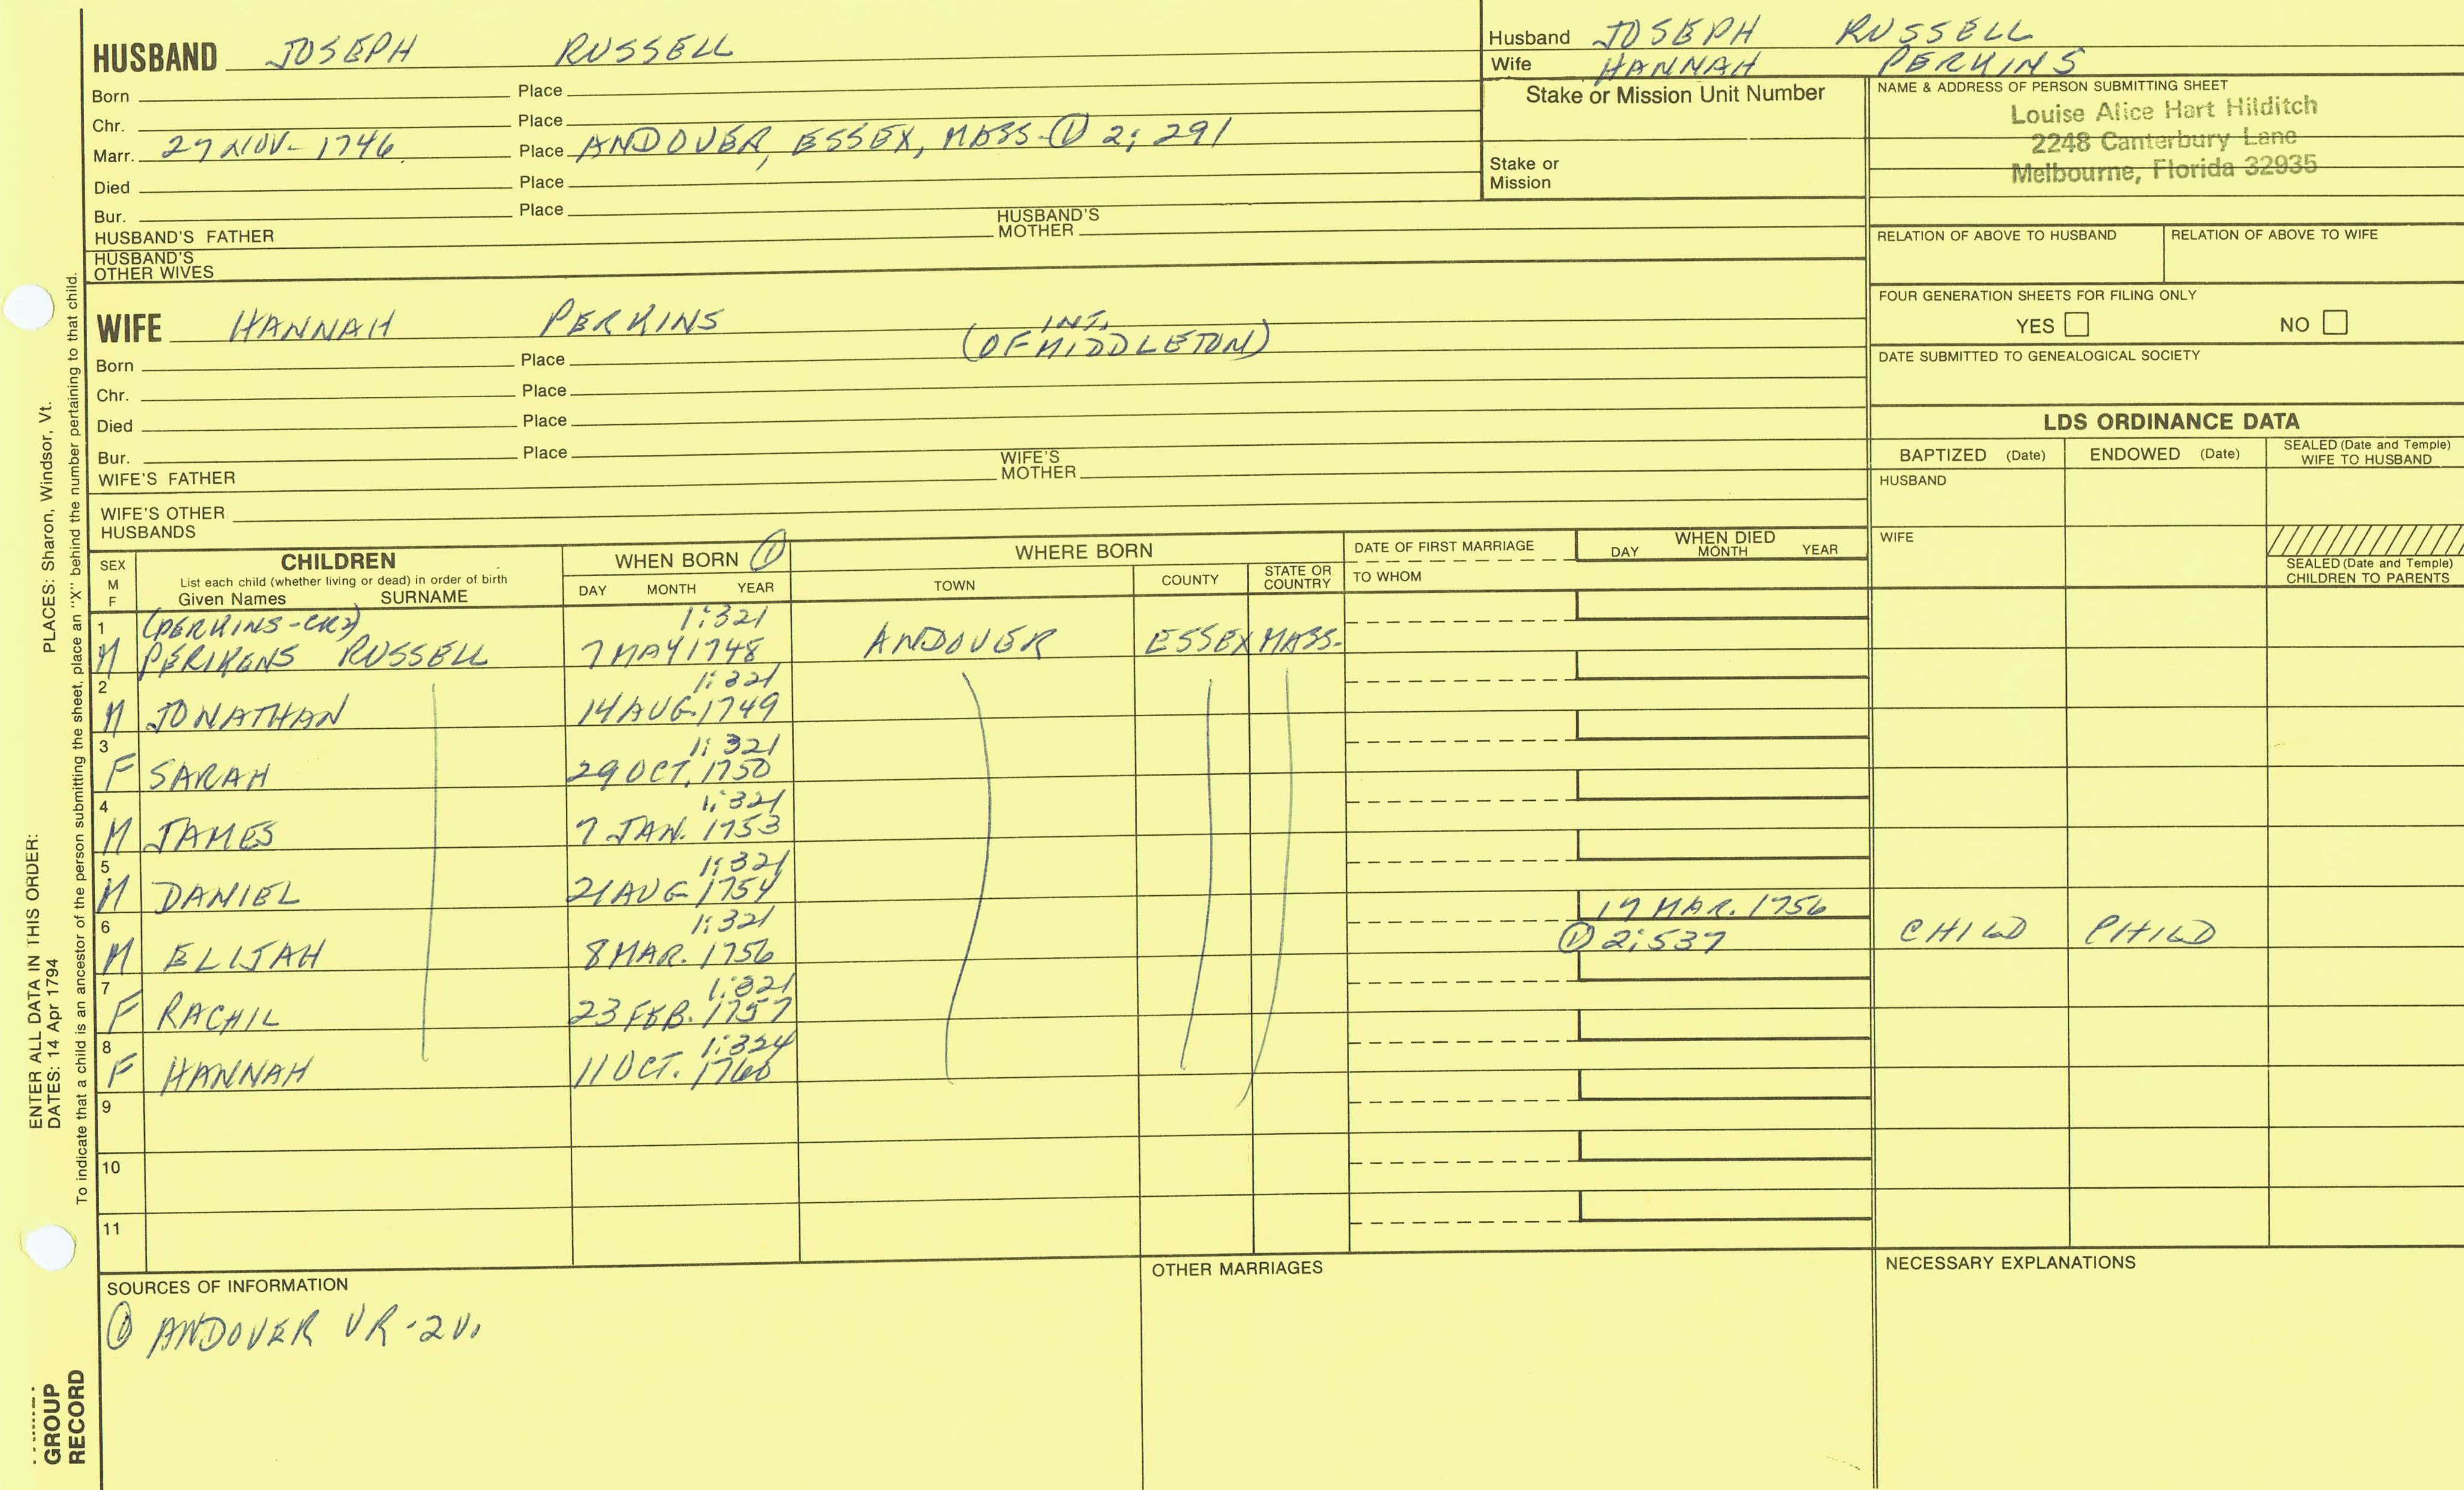 HUSBAND JOSEPH RUSSELL
Born Place
Chr. Place
Marr. 27 NOV- 1746 Place ANDOVER, ESSEX, MASS-① 2:291
Died Place
Bur. Place
HUSBAND'S FATHER HUSBAND'S MOTHER
HUSBAND'S
OTHER WIVES
Husband JOSEPH RUSSELL
Wife HANNAH PERKINS
Stake or Mission Unit Number
Stake or
Mission
NAME & ADDRESS OF PERSON SUBMITTING SHEET
Louise Alice Hart Hilditch
2248 Canterbury Lane
Melbourne, Florida 32935
RELATION OF ABOVE TO HUSBAND RELATION OF ABOVE TO WIFE
FOUR GENERATION SHEETS FOR FILING ONLY
YES NO
DATE SUBMITTED TO GENEALOGICAL SOCIETY
WIFE HANNAH PERKINS
INT.
(OF MIDDLETON)
Born Place
Chr. Place
Died Place
Bur. Place
WIFE'S FATHER WIFE'S MOTHER
WIFE'S OTHER
HUSBANDS
LDS ORDINANCE DATA
BAPTIZED (Date) ENDOWED (Date) SEALED (Date and Temple)
WIFE TO HUSBAND
HUSBAND
WIFE
SEALED (Date and Temple)
CHILDREN TO PARENTS
SEX
M
F
CHILDREN
List each child (whether living or dead) in order of birth
Given Names SURNAME
WHEN BORN ①
DAY MONTH YEAR
WHERE BORN
TOWN COUNTY STATE OR
COUNTRY
DATE OF FIRST MARRIAGE
TO WHOM
WHEN DIED
DAY MONTH YEAR
1 (PERKINS-CR2) 1:321
M PERIKENS RUSSELL 7 MAY 1748 ANDOVER ESSEX MASS-
2 1:321
M JONATHAN 14 AUG. 1749
3 1:321
F SARAH 29 OCT. 1750
4 1:321
M JAMES 7 JAN. 1753
5 1:321
M DANIEL 21 AUG 1754
6 1:321 17 MAR. 1756
M ELIJAH 8 MAR. 1756 ① 2:537 CHILD CHILD
7 1:321
F RACHIL 23 FEB. 1757
8 1:324
F HANNAH 11 OCT. 1760
9
10
11
SOURCES OF INFORMATION
① ANDOVER VR-2V.
OTHER MARRIAGES
NECESSARY EXPLANATIONS
PLACES: Sharon, Windsor, Vt.
ENTER ALL DATA IN THIS ORDER:
DATES: 14 Apr 1794
To indicate that a child is an ancestor of the person submitting the sheet, place an "X" behind the number pertaining to that child.
GROUP
RECORD